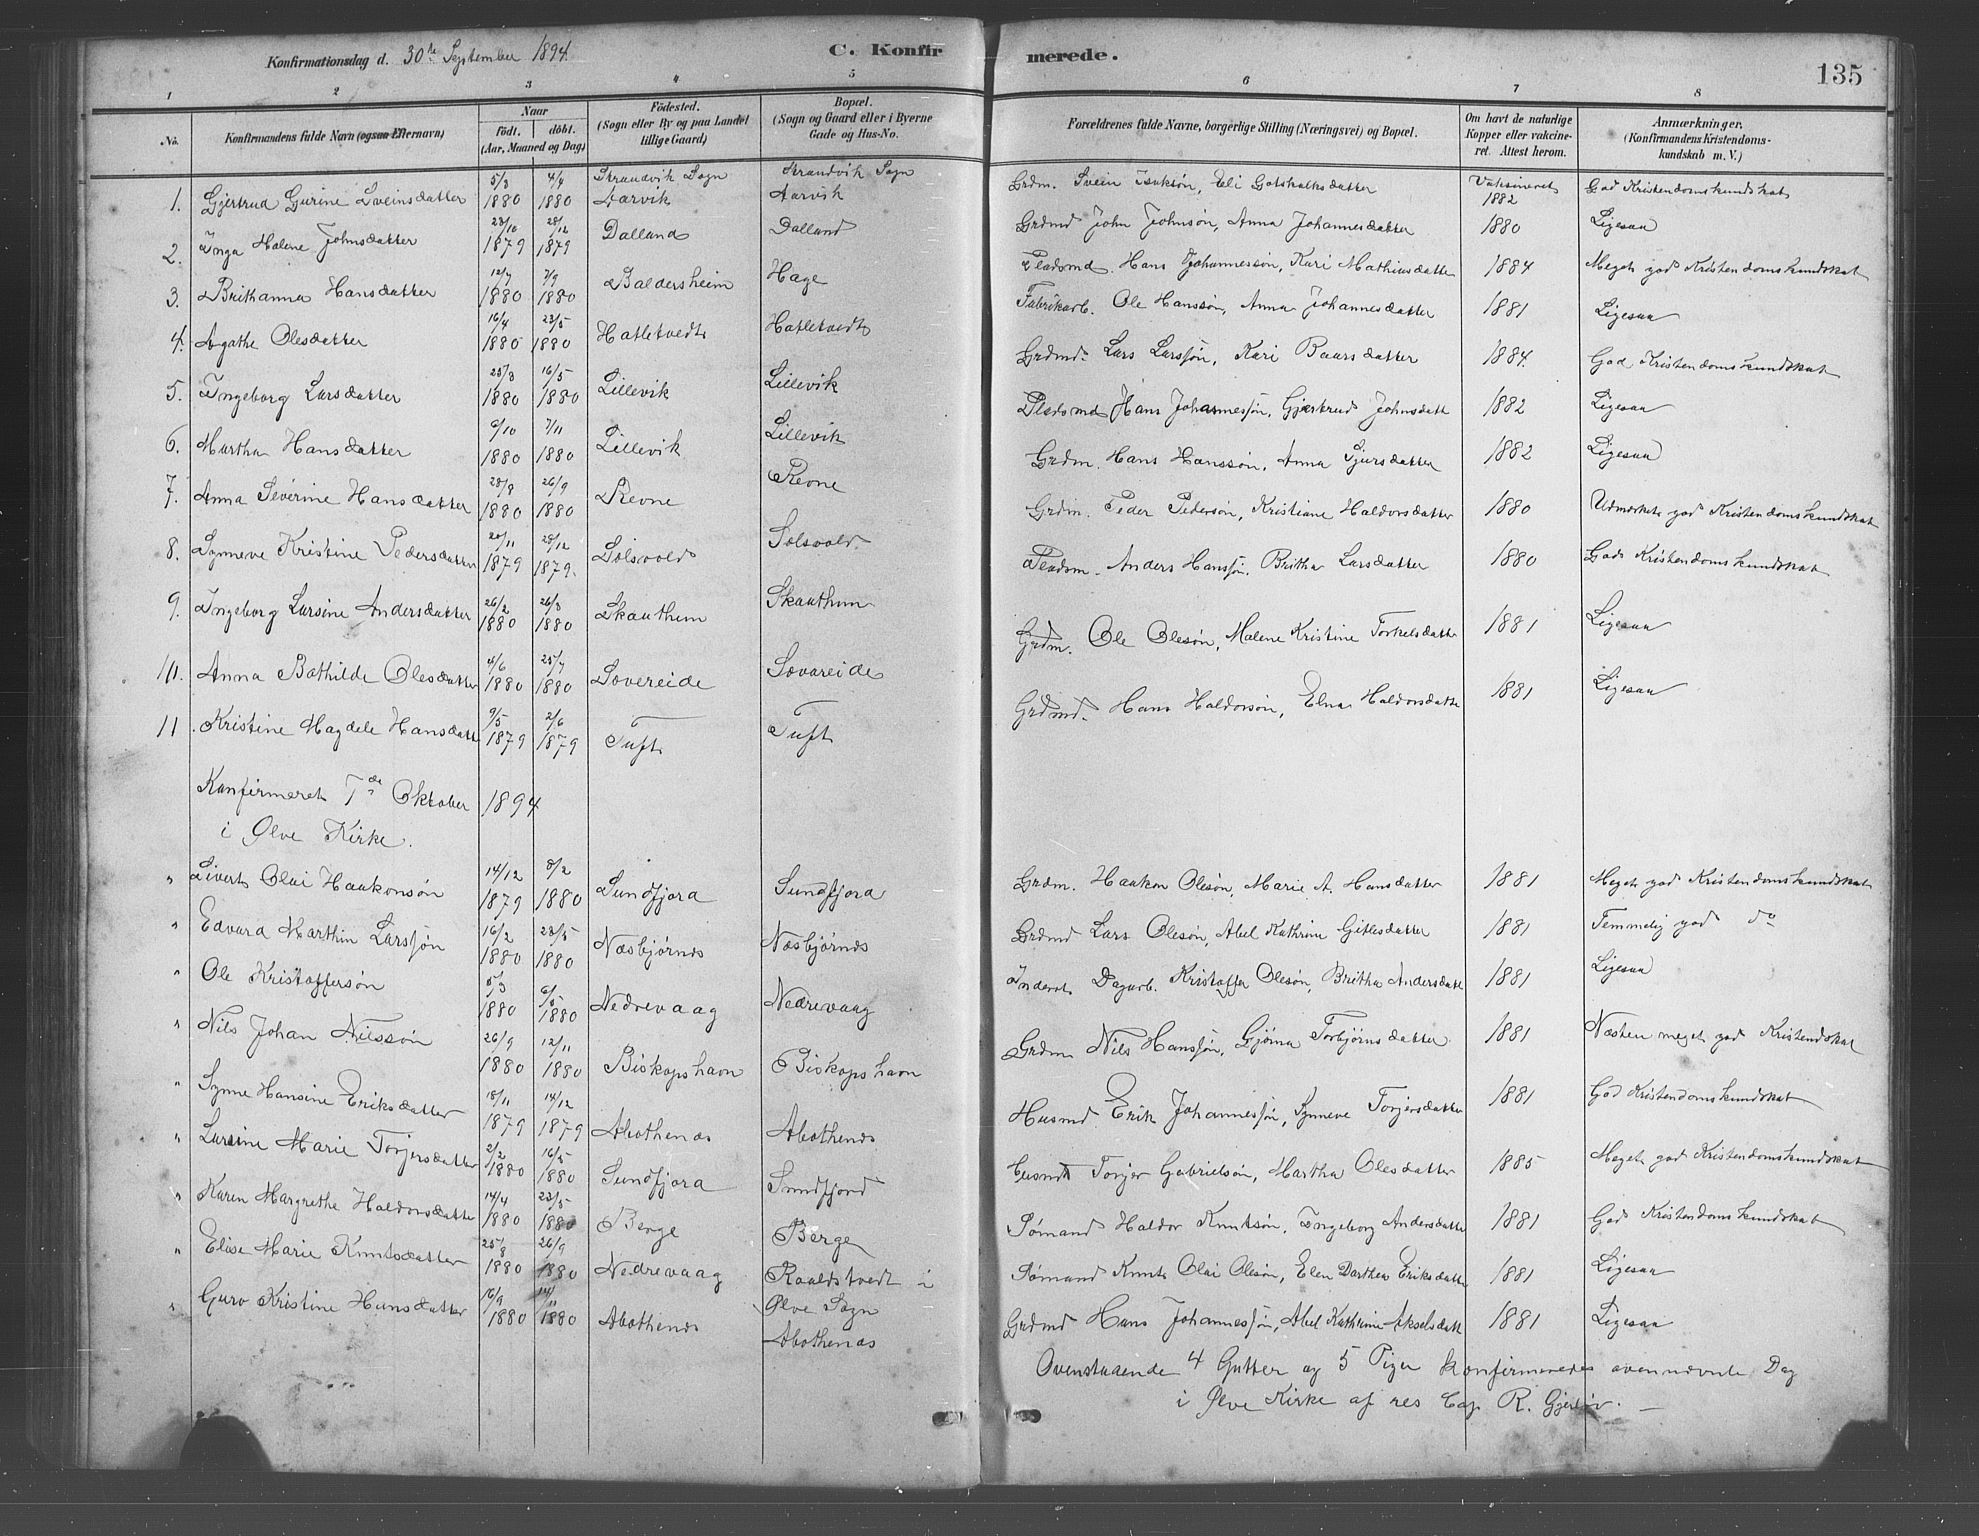 Konfirmationsdag d. 30te September 1894. C. Konfirmerede. 135
1 2 3 4 5 6 7 8
No. Konfirmandens fulde Navn (ogsaa Efternavn) Naar født. døbt. (Aar, Maaned og Dag) Fødested. (Sogn eller By og paa Landet tillige Gaard) Bopæl. (Sogn og Gaard eller i Byerne Gade og Hus-No. Forældrenes fulde Navne, borgerlige Stilling (Næringsvei) og Bopæl. Om havt de naturlige Kopper eller vakcineret. Attest herom. Anmærkninger. (Konfirmandens Kristendomskundskab m. V.)
1. Gjertrud Gurine Sveinsdatter 5/3 1880 4/4 1880 Strandvik Sogn Aarvik Strandvik Sogn Aarvik Grdm. Svein Isaksøn, Eli Gotskalksdatter Vaksineret 1882 God Kristendomskundskab
2. Inga Malene Johnsdatter 23/10 1879 28/12 1879 Dalland Dalland Grdmd John Johnsøn, Anna Johannesdatter 1880 Ligesaa
3. Brithanna Hansdatter 12/7 1880 7/9 1880 Baldersheim Hage Pladsmd. Hans Johannessøn, Kari Mathiasdatter 1884 Meget god Kristendomskundskab
4. Agathe Olesdatter 16/4 1880 23/5 1880 Hatletvedt Hatletvedt Fabrikarb. Ole Hanssøn, Anna Johannesdatter 1881 Ligesaa
5. Ingeborg Larsdatter 25/3 1880 16/5 1880 Lillevik Lillevik Grdmd. Lars Larssøn, Kari Baarsdatter 1884. God Kristendomskundskab
6. Martha Hansdatter 9/10 1880 7/11 1880 Lillevik Lillevik Pladsmd Hans Johannessøn, Gjertrud Johnsdatt 1882 Ligesaa
7. Anna Severine Hansdatter 28/8 1880 26/9 1880 Revne Revne Grdm. Hans Hanssøn, Anna Sjursdatter 1882 Ligesaa
8. Synneve Kristine Pedersdatter 20/11 1879 28/12 1879. Solsvold Solsvold Grdm. Peder Pedersøn, Kristiane Haldorsdatter 1880 Udmerket god Kristendomskundskab
9. Ingeborg Larsine Andersdatter 26/2 1880 26/3 1880 Skauthem Skauthum Pladsm. Anders Hanssøn, Britha Larsdatter 1880 God Kristendomskundskab
10. Anna Bothilde Olesdatter 4/6 1880 25/7 1880 Sovereide Sovareide Grdm. Ole Olesøn, Malene Kristine Torkelsdatter 1881 Ligesaa
11 Kristine Magdele Hansdatt 9/5 1879 2/6 1879 Tuft Tuft Grdmd. Hans Haldorsøn, Elna Haldorsdatte 1881 Ligesaa
Konfirmeret 7de Oktober 1894
i Ølve Kirke.
" Sivert Olai Haakonsøn 14/12 1879 8/2 1880 Sundfjora Sundfjora Grdm. Haakon Olesøn, Marie A. Hansdatter 1881 Meget god Kristendomskundskab
" Edvard Marthin Larssøn 16/2 1880 23/5 1880 Næsbjørnes Næsbjørnes Grdmd Lars Olesøn, Abel Kathrine Gitlesdatter 1881 Temmelig god do
" Ole Kristoffersøn 5/3 1880 6/5 1880 Nedrevaag Nedrevaag Inderst. Dagarb. Kristoffer Olesøn, Britha Andersdatt 1881 Ligesaa
" Nils Johan Nilssøn 26/9 1880 12/11 1880 Biskopshavn Biskopshavn Grdm Nils Hanssøn, Gjøma Torbjørnsdatter 1881 Næsten meget god Kristendskab
" Synne Hansine Eriksdatter 18/11 1879 14/12 1879 Abothenæs Abothenes Husmd. Erik Johannessøn, Synneve Torjersdatter 1881 God Kristendomskundskab
" Larsine Marie Torjersdatter 2/2 1880 16/5 1880 Sundfjora Sundfjord Husmd Torjer Gabrielsøn, Martha Olesdatter 1885 Meget god Kristendomskundskab
" Karen Margrethe Haldorsdatter 14/4 1880 23/5 1880 Berge Berge Sømand Haldor Knutsøn, Ingeborg Andersdatte 1881 God Kristendomskundskab
" Elise Marie Knutsdatter 25/8 1880 26/9 1880 Nedrevaag Roaldstvedt i Ølve Sogn Sømand Knut Olai Olesøn, Elen Darthea Eriksdatte 1881 Ligesaa
" Guro Kristine Hansdatter 16/9 1880 14/11 1880 Abothenes Abothenæs Grdmd Hans Johannessøn, Abel Kathrine Akselsdatt 1881 Ligesaa
Ovenstaaende 4 Gutter og 5 Piger konfirmeredes ovennævnte Dag
i Ølve Kirke af res Cap R. Gjerløv.